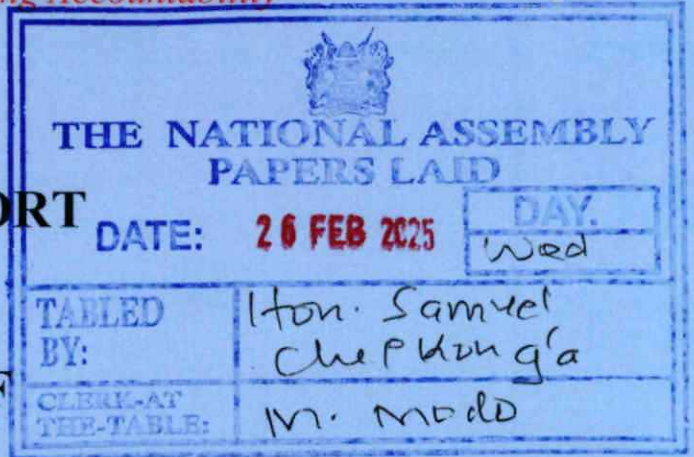 ng Accountability
THE NATIONAL ASSEMBLY
PAPERS LAID
ORT
DATE: 26 FEB 2025
DAY.
Wed
TABLED BY:
Hon. Samuel
Chepkong'a
CLERK-AT
THE-TABLE:
M. Modo
F